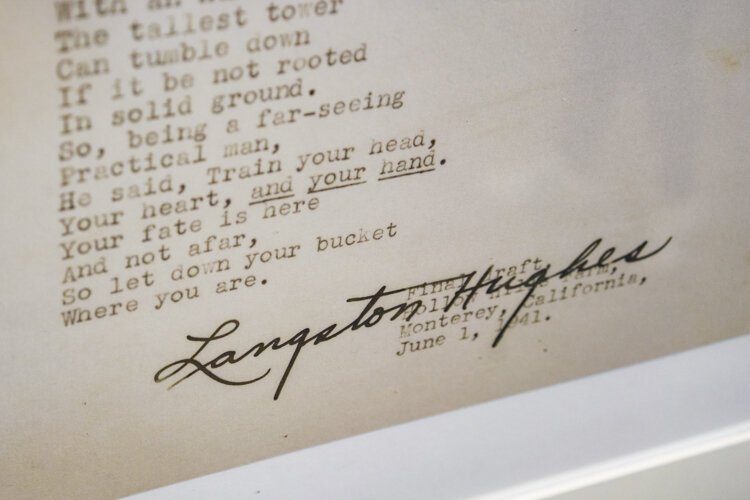 With an
The tallest tower
Can tumble down
If it be not rooted
In solid ground.
So, being a far-seeing
Practical man,
He said, Train your head,
Your heart, and your hand.
Your fate is here
And not afar,
So let down your bucket
Where you are.
Final Draft,
Farm,
Monterey, California,
June 1, 1941.
Langston Hughes